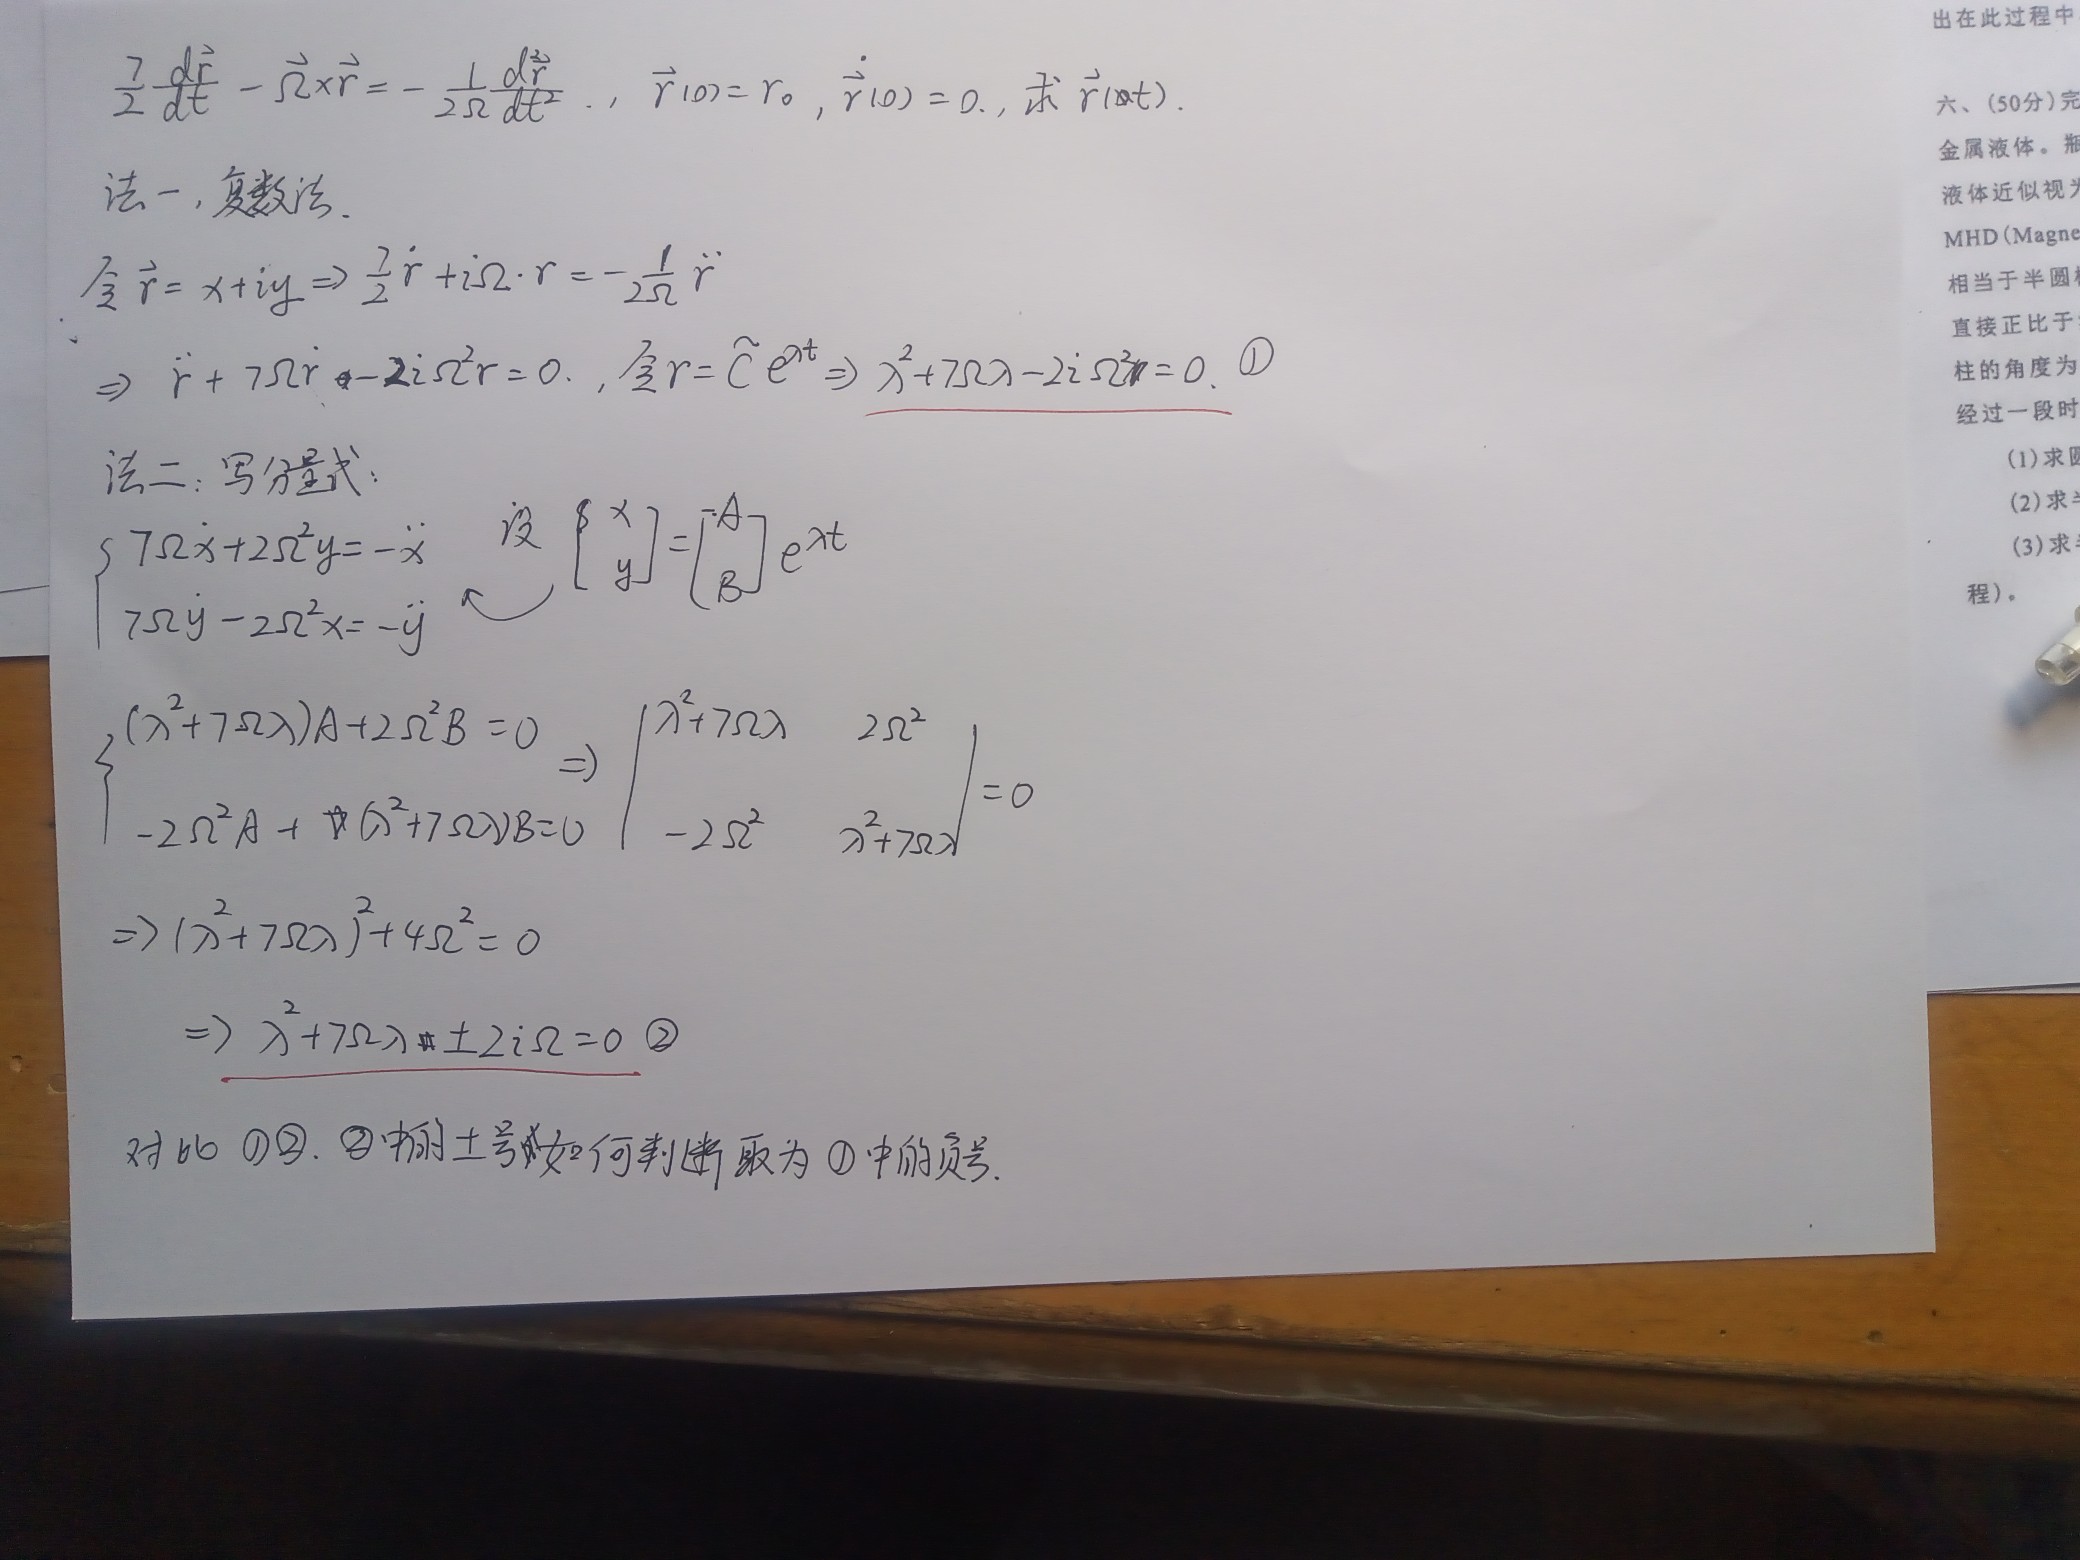 7/2 dr⃗/dt - Ω⃗×r⃗ = - 1/2Ω d²r⃗/dt² ., r⃗(0)=r₀, ṙ⃗(0)=0., 求 r⃗(t).
法一,复数法.
令 r⃗ = x+iy ⇒ 7/2 ṙ + iΩ·r = - 1/2Ω r̈
⇒ r̈ + 7Ωṙ - 2iΩ²r = 0. , 令 r = C̃e^λt ⇒ λ²+7Ωλ-2iΩ²=0. ①
法二:写分量式:
{ 7Ωẋ+2Ω²y=-ẍ
7Ωẏ-2Ω²x=-ÿ
设 [x y] = [A B] e^λt
{ (λ²+7Ωλ)A+2Ω²B=0
-2Ω²A+(λ²+7Ωλ)B=0
⇒ | λ²+7Ωλ 2Ω²
-2Ω² λ²+7Ωλ | =0
⇒ (λ²+7Ωλ)²+4Ω²=0
⇒ λ²+7Ωλ ±2iΩ=0 ②
对比 ①②. ②中的±号如何判断取为①中的负号.
出在此过程中
六、(50分)完
金属液体。瓶
液体近似视为
MHD(Magne
相当于半圆柱
直接正比于
柱的角度为
经过一段时
(1)求圆
(2)求半
(3)求
程)。